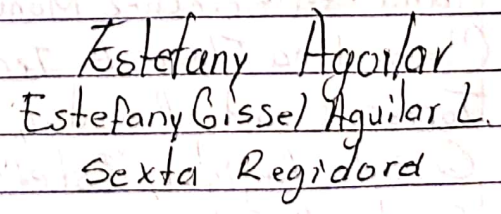 Estefany Agoilar
Estefany Gissel Aguilar L.
Sexta Regidora